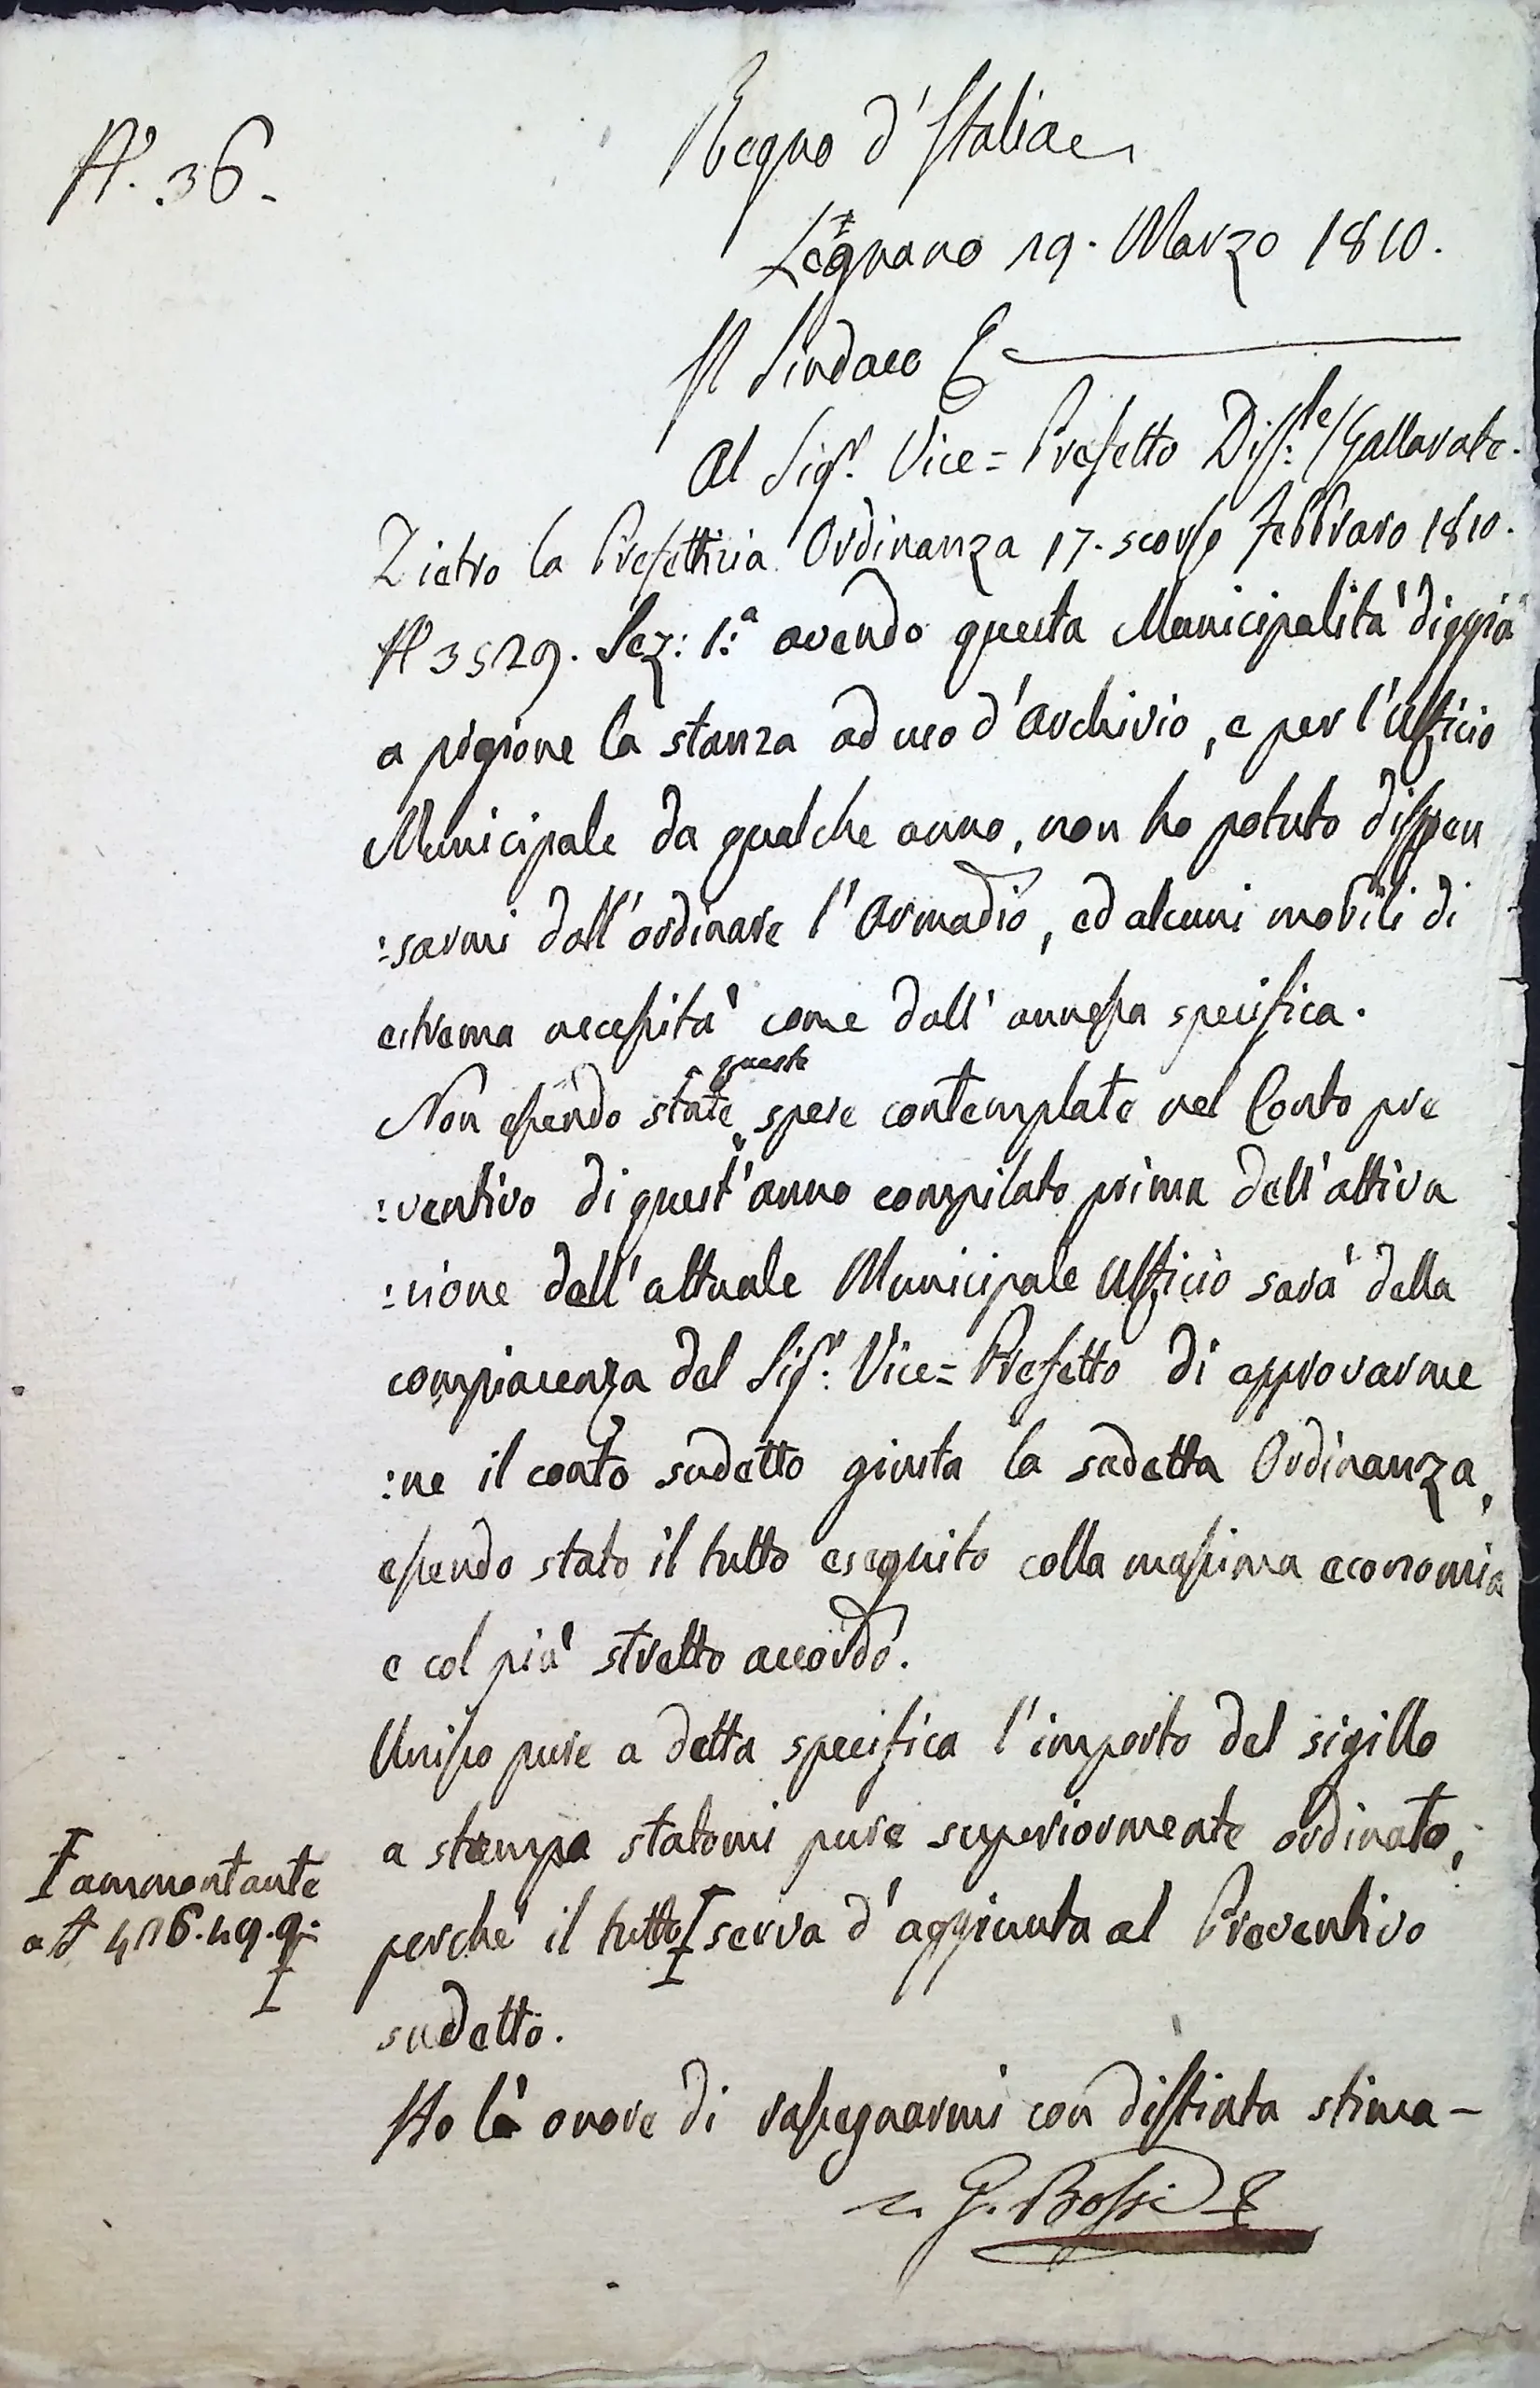 N.° 36.
Regno d'Italia
Legnano 19. Marzo 1810.
Il Sindaco
Al Sig.r Vice= Prefetto Diss:le / Gallarate.
Dietro la Prefettizia Ordinanza 17. scorso Febbraro 1810.
N° 3529. Sez: 1:a avendo questa Municipalità diggià
a pigione la stanza ad uso d'Archivio, e per l'Ufficio
Municipale da qualche anno, non ho potuto dispen
:sarmi dall'ordinare l'Armadio, ed alcuni mobili di
estrema necessità come dall'annessa specifica.
Non essendo state queste spese contemplate nel Conto pre
:ventivo di quest'anno compilato prima dell'attiva
:zione dell'attuale Municipale Ufficio sarà della
compiacenza del Sig.r Vice= Prefetto di approvarme
:ne il conto sudetto giusta la sudetta Ordinanza,
essendo stato il tutto eseguito colla massima economia
e col più stretto accordo.
Unisco pure a detta specifica l'importo del sigillo
a stampa statomi pure superiormente ordinato,
perchè il tutto serva d'aggiunta al Preventivo
sudetto.
ammontante
a £ 416.49.9:
Ho l'onore di rassegnarmi con distinta stima –
G. Bossi